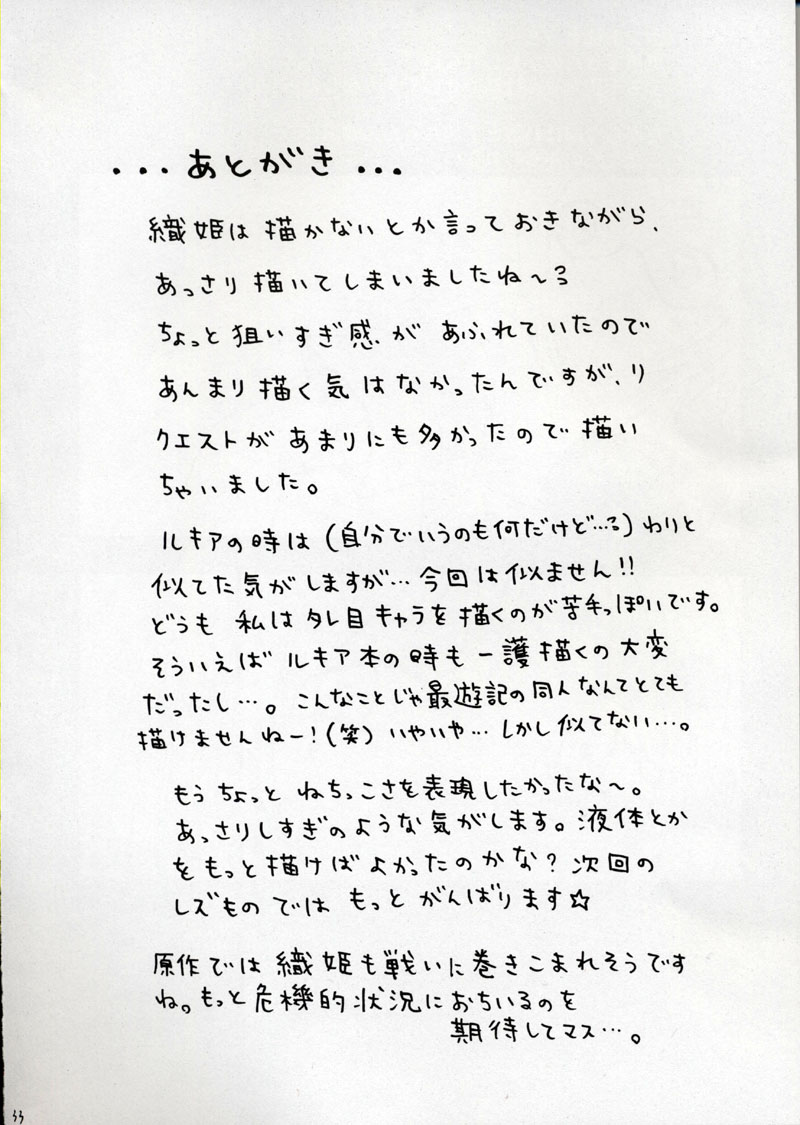 ・・・あとがき・・・
織姫は描かないとか言っておきながら、
あっさり描いてしまいましたね～る
ちょっと狙いすぎ感、があふれていたので
あんまり描く気はなかったんですが、リ
クエストがあまりにも多かったので描い
ちゃいました。
ルキアの時は(自分でいうのも何だけど…る)わりと
似てた気がしますが…今回は似ません!!
どうも私はタレ目キャラを描くのが苦手っぽいです。
そういえばルキア本の時も一護描くの大変
だったし…。こんなことじゃ最遊記の同人なんてとても
描けませんねー!(笑)いやいや…しかし似てない…。
もうちょっとねちっこさを表現したかったな～。
あっさりしすぎのような気がします。液体とか
をもっと描けばよかったのかな?次回の
レズものではもっとがんばります☆
原作では織姫も戦いに巻きこまれそうです
ね。もっと危機的状況におちいるのを
期待してマス…。
33